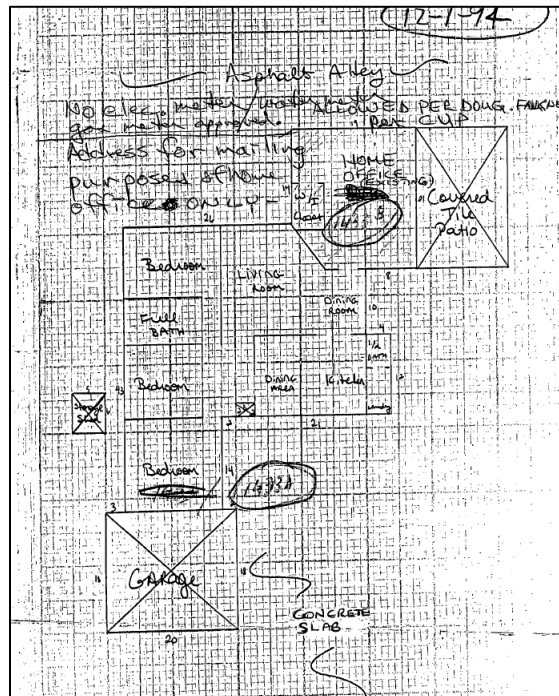 12-1-94
Asphalt Alley
No elec. meter/water meter
ALLOWED PER DOUG.
gas meter approved.
Per CUP
Address for mailing
purposes of home
office ONLY -
HOME
OFFICE
(EXISTING)
W/I
Closet
Covered
Tile
Patio
26
8
Bedroom
LIVING
ROOM
Full
BATH
DINING
ROOM
10
4
1/2
BATH
Bedroom
DINING
AREA
Kitchen
5
43
Storage
Shed
21
Bedroom
14
1493A
3
GARAGE
18
18
20
CONCRETE
SLAB